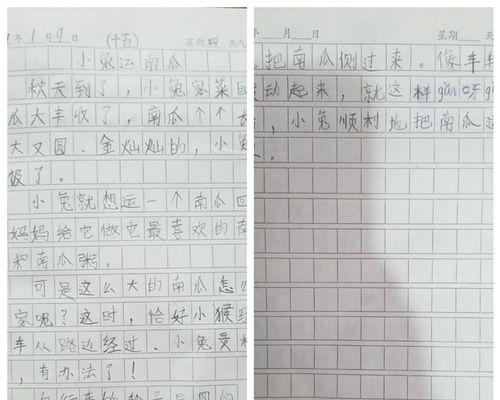 年 1 月 9 日 (十五) 星期四 天气
小兔运南瓜
秋天到了，小兔家菜园
瓜大丰收了，南瓜个个长
大又圆．金灿灿的，小兔
极了。
小兔就想运一个南瓜回
妈妈给它做它最喜欢的南
和南瓜粥。
可是这么大的南瓜怎么
家呢？这时，恰好小猴
车从路边经过．小兔灵
，有办法了！
自行车的轮子是圆的
年 月 日 星期 天气
把南瓜侧过来。像车
动起来，就这样gūn呀g
，小兔顺利地把南瓜运
。